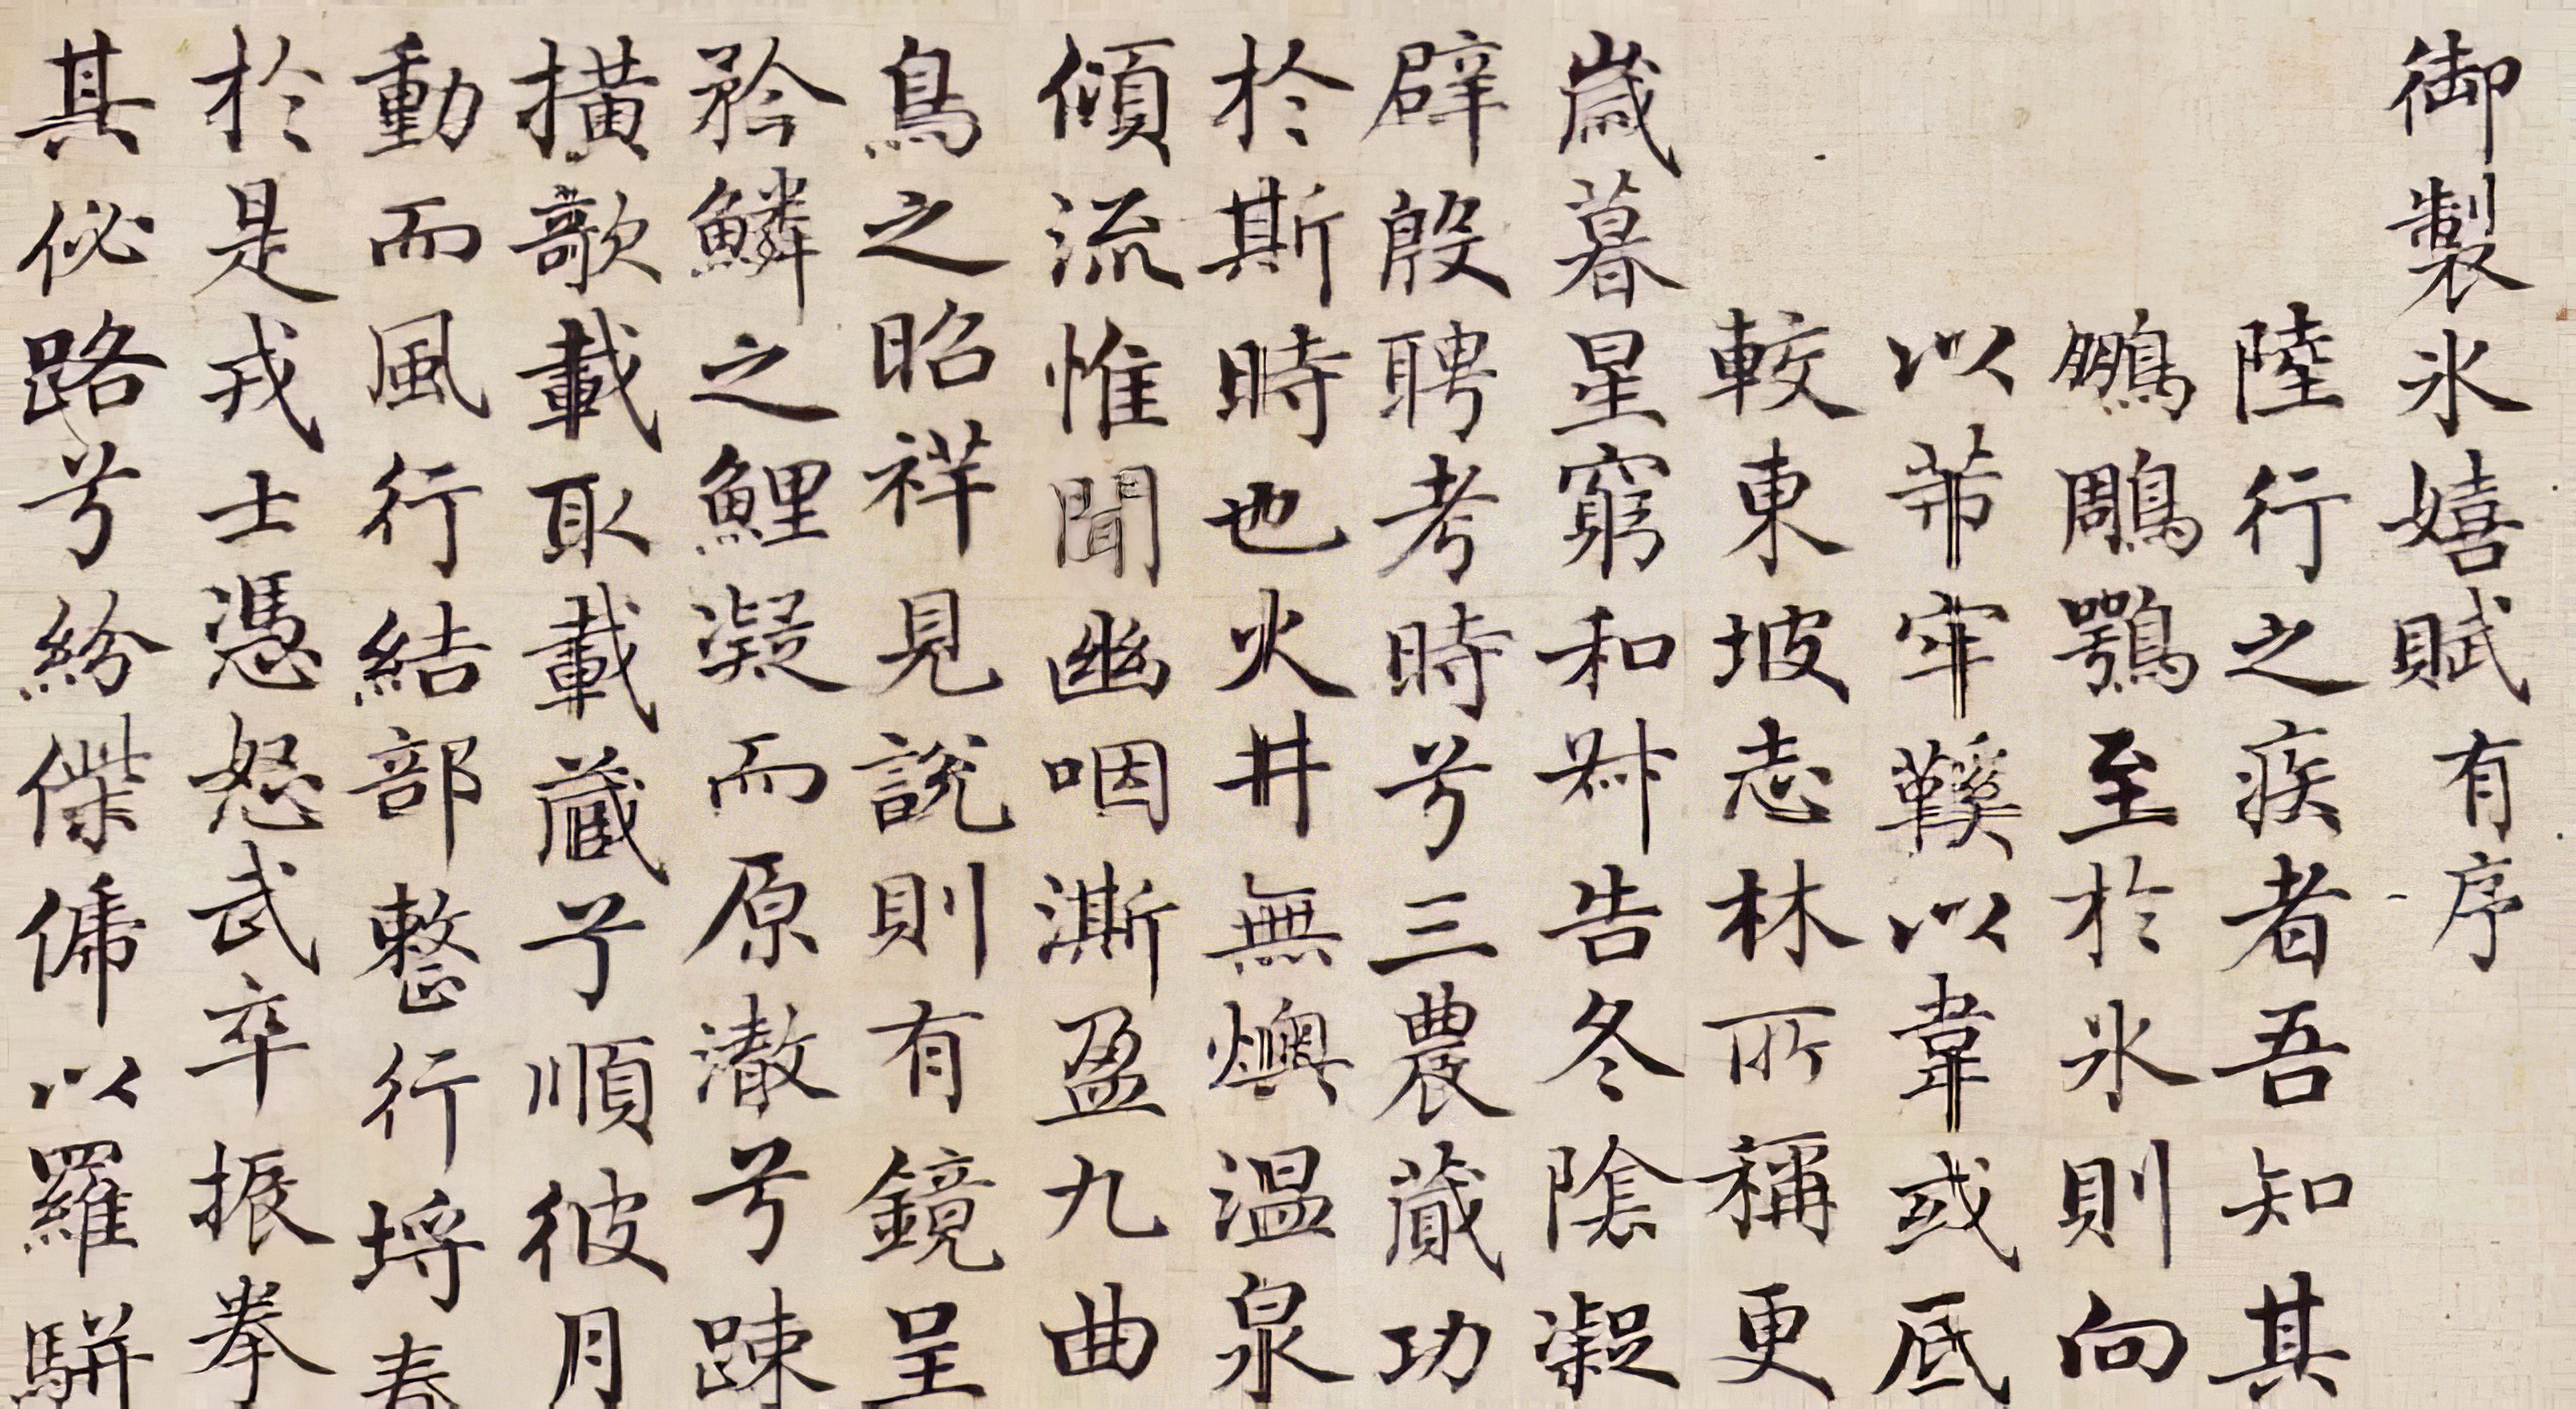 御製冰嬉賦有序
陸行之疾者吾知其
鵬鵰鶚至於冰則向
以芾牢鞵以韋或底
較東坡志林所稱更
歲暮星窮和叔告冬陰凝
辟殷聘考時兮三農蕆功
於斯時也火井無燠溫泉
傾流惟聞幽咽澌盈九曲
鳥之昭祥見說則有鏡呈
於鱗之鯉凝而原澈兮疎
橫歌載取載蔵兮順彼月
動而風行結部整行埒春
於是戎士憑怒武卒振拳
其佖路兮紛傑㒔以羅駢